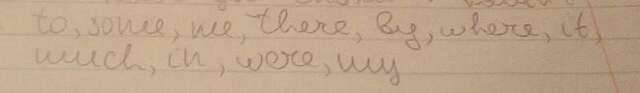 to, some, me, there, by, where, it,
much, in, were, my